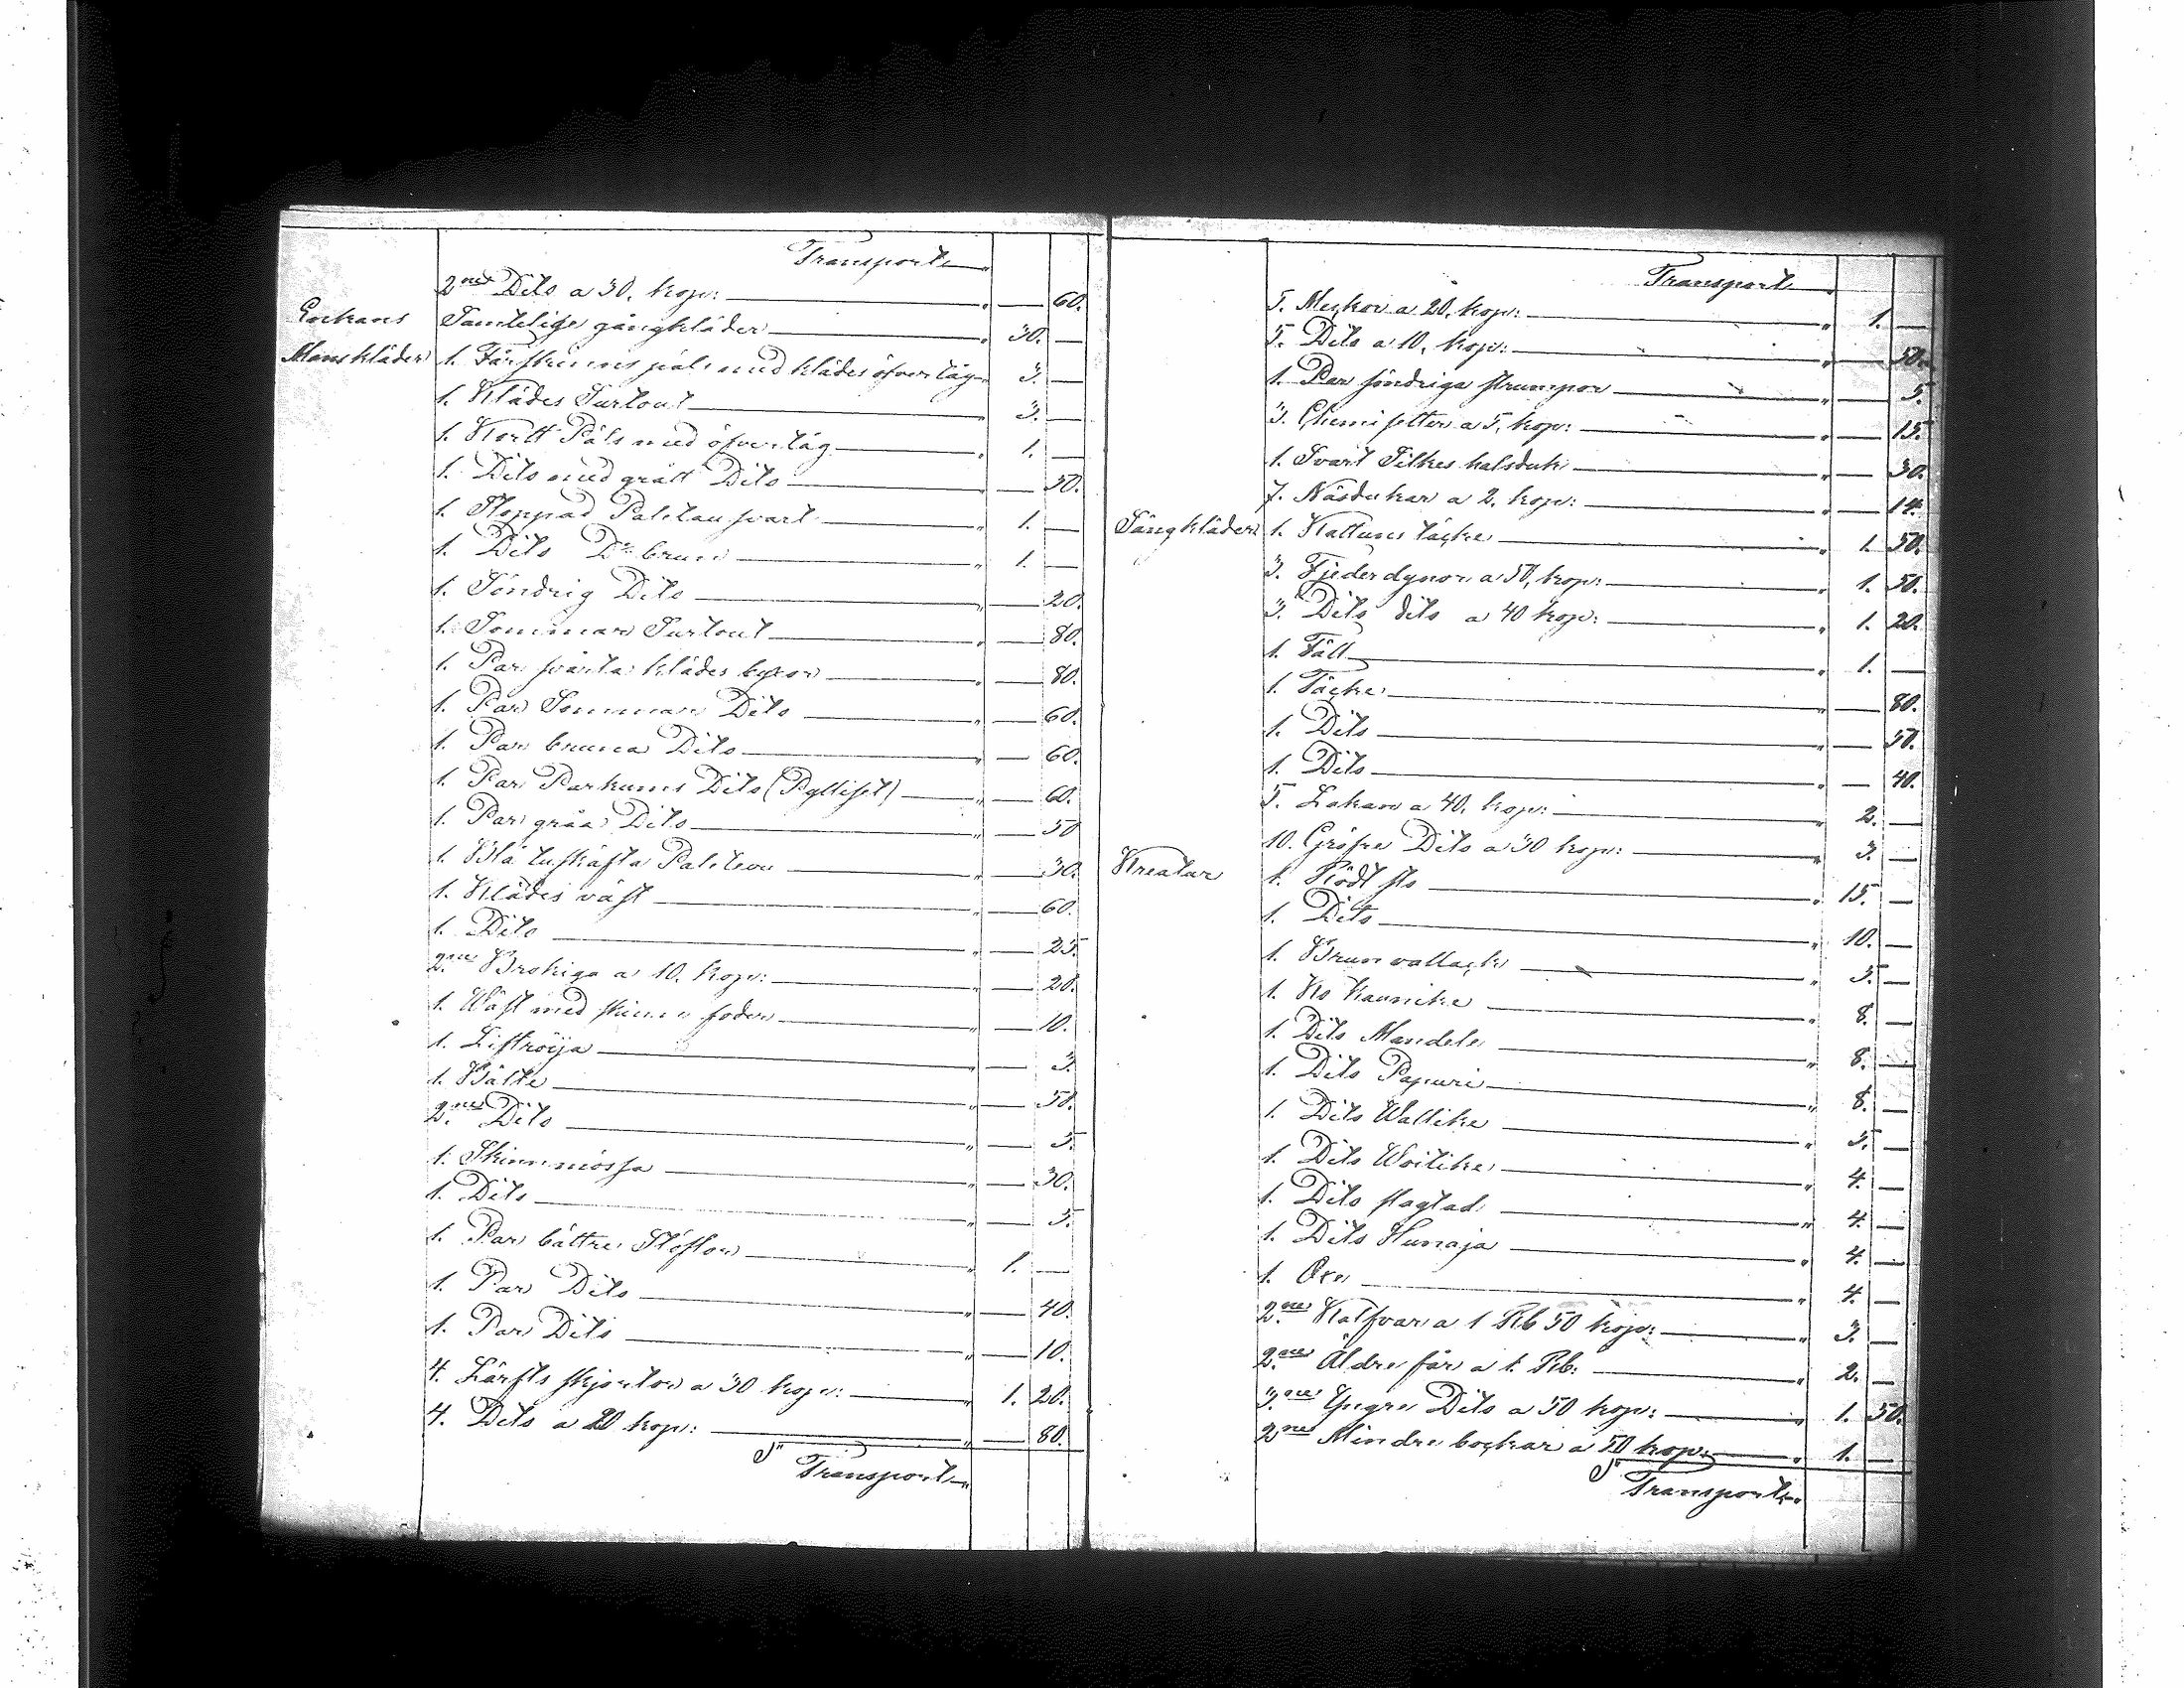 Transport „
2ne Dito a 30. kop: „ — 60.
Enkans Samtelige gångkläder „ 30. —
Manskläder 1. Fårskinns päls med klädes öfvertåg „ 3. —
1. Klädes Surtout „ 3. —
1. Kortt Päls med öfvertåg „ 1. —
1. Dito med grått Dito „ — 50.
1. Stoppad Paletau svart „ 1. —
1. Dito Do brun „ 1. —
1. Söndrig Dito „ — 20.
1. Sommar Surtout „ — 80.
1. Par svarta klädes byxor „ — 80.
1. Par Sommar Dito „ — 60.
1. Par bruna Dito „ — 60.
1. Par Parkums Dito „ — 60.
1. Par gråa Dito „ — 50
1. Blå tuskafts Paletou „ — 30.
1. Klädes väst „ — 60.
1. Dito „ — 25.
2ne Brokiga a 10. kop: „ — 20.
1. Wäst med skinn foder „ — 10.
1. Liftröija „ — 3.
1. Bälte „ — 50.
2ne Dito „ — 5.
1. Skinnmössa „ — 30.
1. Dito „ — 5.
1. Par bättre Stöflor „ 1. —
1. Par Dito „ — 40.
1. Par Dito „ — 10.
4. Lärfts skjortor a 30 kop: „ 1. 20.
4. Dito a 20 kop: „ — 80.
Transport „
Transport „
5. a 20. kop: „ 1. —
5. Dito a 10. kop: „ — 50.
1. Par söndriga strumpor „ — 5.
3. Chemisetter a 5. kop: „ — 15.
1. Svart Silkes halsduk „ — 30.
7. Näsdukar a 2. kop: „ — 14.
Sängkläder 1. Kattuns täcke „ 1. 50.
3. Fjederdynor a 50. kop: „ 1. 50.
3. Dito dito a 40 kop: „ 1. 20.
1. Fäll „ 1. —
1. Täcke „ — 80.
1. Dito „ — 50.
1. Dito „ — 40.
5. Lakan a 40. kop: „ 2. —
10. Gröfre Dito a 30 kop: „ 3. —
Kreatur 1. Rödt sto „ 15. —
1. Dito „ 10. —
1. Brun vallack „ 5. —
1. Ko Kaunike „ 8. —
1. Dito Mandele „ 8. —
1. Dito Papuri „ 8. —
1. Dito Wallike „ 5. —
1. Dito Woitike „ 4. —
1. Dito slagtad „ 4. —
1. Dito Hunaja „ 4. —
1. Oxe „ 4. —
2ne Kalfvar a 1 Rb 50 kop: „ 3. —
2ne Äldre får a 1. Rb: „ 2. —
3ne Yngre Dito a 50 kop: „ 1. 50.
2ne Mindre bockar a 50 kop: „ 1. —
Transport „